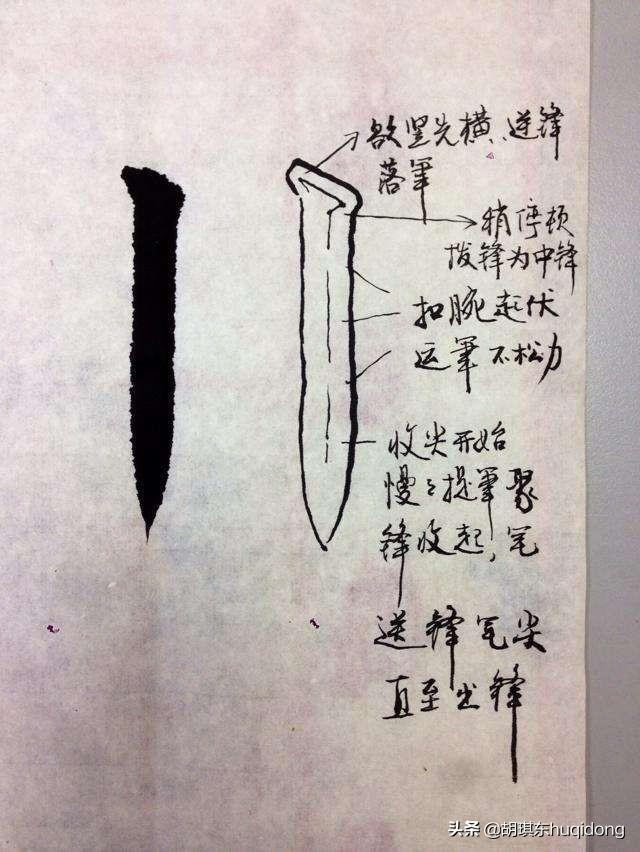 欲竖先横、逆锋
落筆
稍停顿
拨锋为中锋
扣腕起伏
运筆不松力
收尖开始
慢々提筆聚
锋收起,笔
送锋笔尖
直至出锋
头条 @胡琪东huqidong